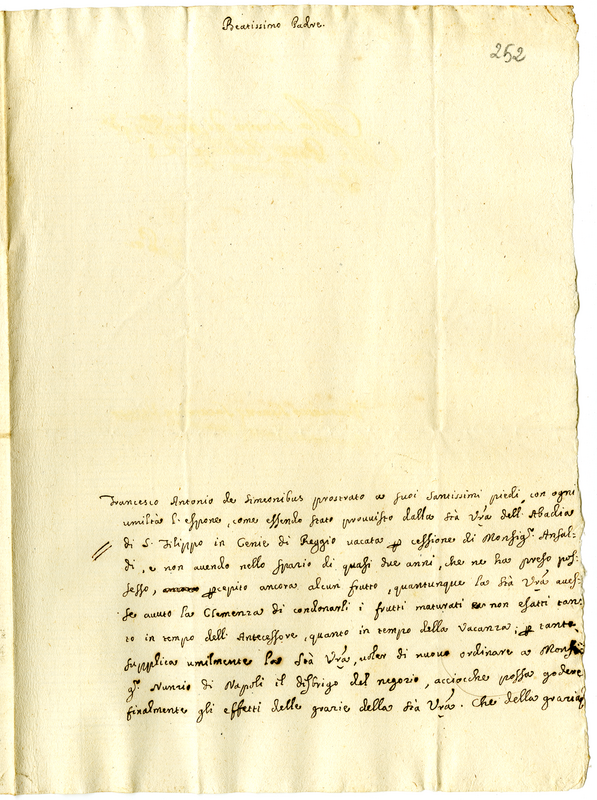 Beatissimo Padre.
252
Francesco Antonio de Simeonibus prostrato a suoi Santissimi piedi, con ogni
umiltà l'espone, come essendo stato provvisto dalla Stà Vrã dell'Abadia
di S. Filippo in Cenie di Reggio vacata p cessione di Monsigr. Ansal-
di, e non avendo nello spazio di quasi due anni, che ne ha preso pos-
sesso, pcepito ancora alcun frutto, quantunque la Stà Vrã aves-
se avuto la Clemenza di condonarli i frutti maturati e non esatti tan-
to in tempo dell'Antecessore, quanto in tempo della Vacanza; p tanto
supplica umilmente la Stà Vrã, voler di nuovo ordinare a Monsi
gr. Nunzio di Napoli il disbrigo del negozio, acciocche possa godere
finalmente gli effetti delle grazie della Stà Vrã. Che della grazia